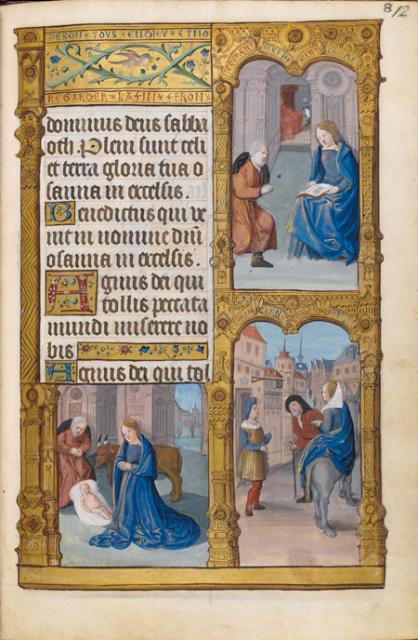 8 12
REGARDER LAFIN
dominus deus sabba
oth. Pleni sunt celi
et terra gloria tua o
sanna in excelsis.
Benedictus qui ve
nit in nomine dñi
osanna in excelsis.
Agnus dei qui
tollis peccata
mundi miserere no
bis
Agnus dei qui tol